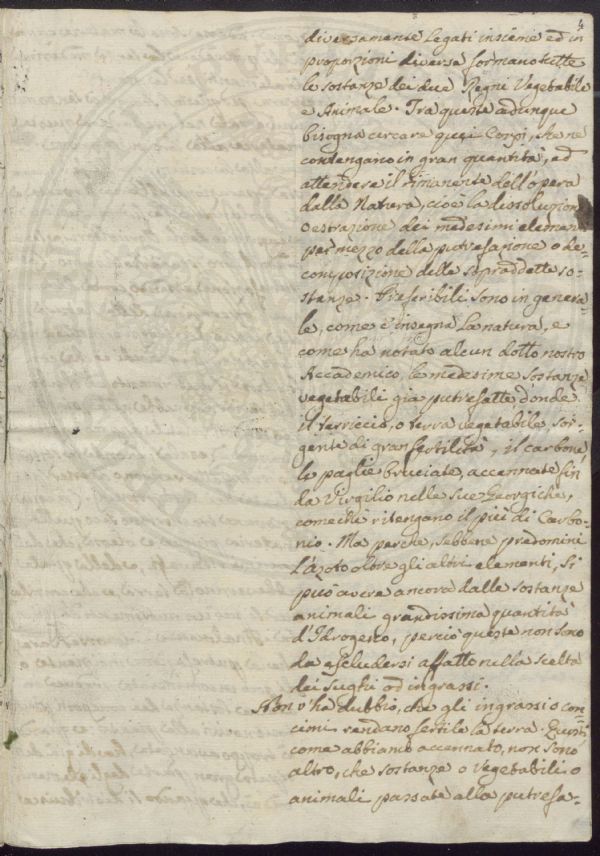 4
diversamente legati insieme ed in
proporzioni diverse formano tutte
le sostanze dei due Regni Vegetabile
e Animale. Tra queste adunque
bisogna cercare quei Corpi, che ne
contengano in gran quantità, ed
attendere il rimanente dell'opera
dalla Natura, cioè la dissoluzion
o estrazione dei medesimi elemen
per mezzo della putrefazione o de-
composizione delle sopraddette so-
stanze. Preferibili sono in genera-
le, come c'insegna la natura, e
come ha notato alcun dotto nostro
Accademico le medesime sostanze
vegetabili già putrefatte donde
il terriccio, o terra vegetabile sor-
gente di gran fertilità, il carbone,
le paglie bruciate, accennate fin
da Virgilio nelle sue Georgiche,
come che ritengano il più di Carbo-
nio. Ma perchè, sebbene predomini
l'Azoto oltre gli altri elementi, si
può avere ancora dalle sostanze
animali grandissima quantità
d'Idrogeno, perciò queste non sono
da escludersi affatto nella scelta
dei sughi od ingrassi.
Non v'ha dubbio, che gli ingrassi o con
cimi rendano fertile la terra. Questi
come abbiamo accennato, non sono
altro, che sostanze o vegetabili o
animali passate alla putrefa-